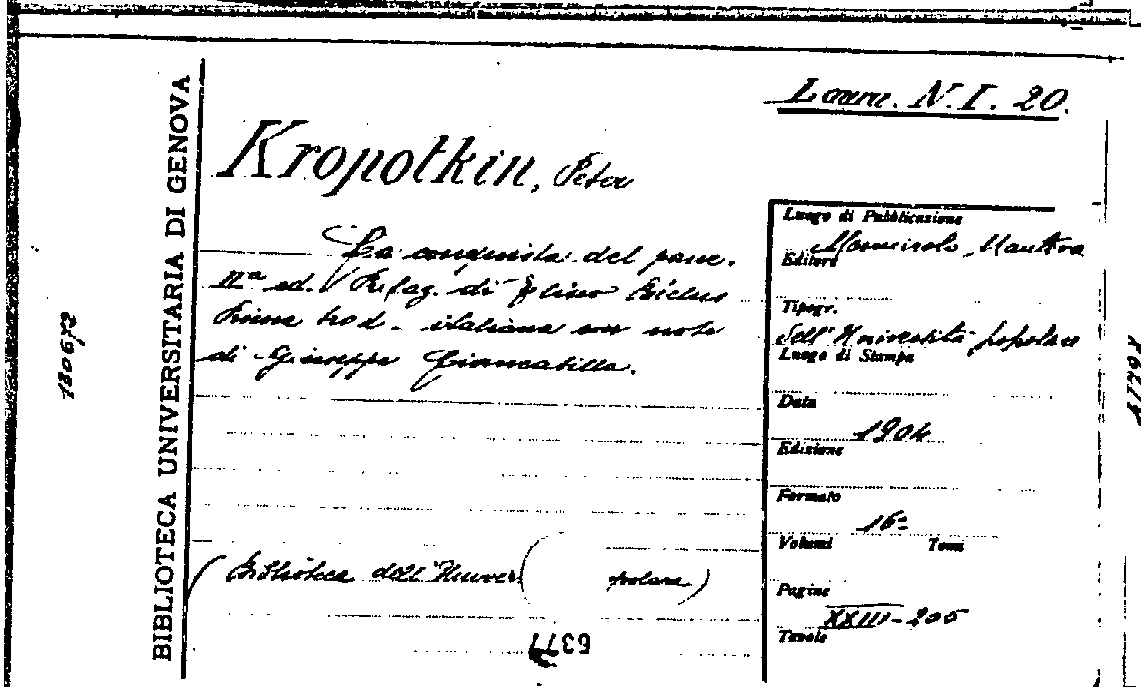 BIBLIOTECA UNIVERSITARIA DI GENOVA
N. I. 20.
Kropotkin, Peter
La conquista del pane.
IIa ed. Prefaz. di Eliseo Reclus
Prima trad. italiana con note
di Giuseppe Ciancabilla.
(Biblioteca dell'Univer( polare)
6377
180673
Luogo di Pubblicazione
Mantova
Editore
Tipogr.
dell'Università popolare
Luogo di Stampa
Data
1904
Edizione
Formato
16°
Volumi Tomi
Pagine
XXIII-205
Tavole